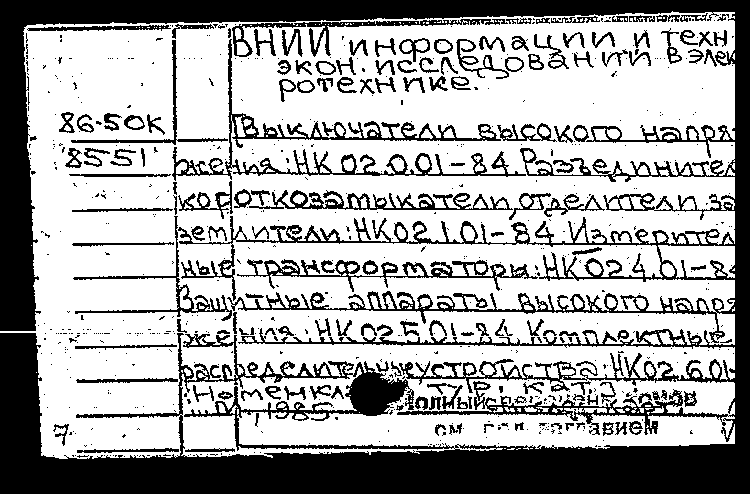 ВНИИ информации и техн
экон. исследований в элек
ротехнике.
86-50к [Выключатели высокого напря
8551 жения: НК 02.0.01-84. Разъединител
короткозамыкатели, отделители, за
землители: НК 02.1.01-84. Измерител
ные трансформаторы: НК 02 4.01-84
Защитные аппараты высокого напря
жения: НК 02.5.01-84. Комплектные
распределительные устройства: НК 02.6.01-
: Номенкла тур. кат.]
1985. Полный
7 см под заглавием